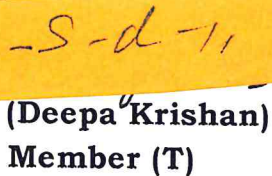 -S-d-/,
(Deepa Krishan)
Member (T)